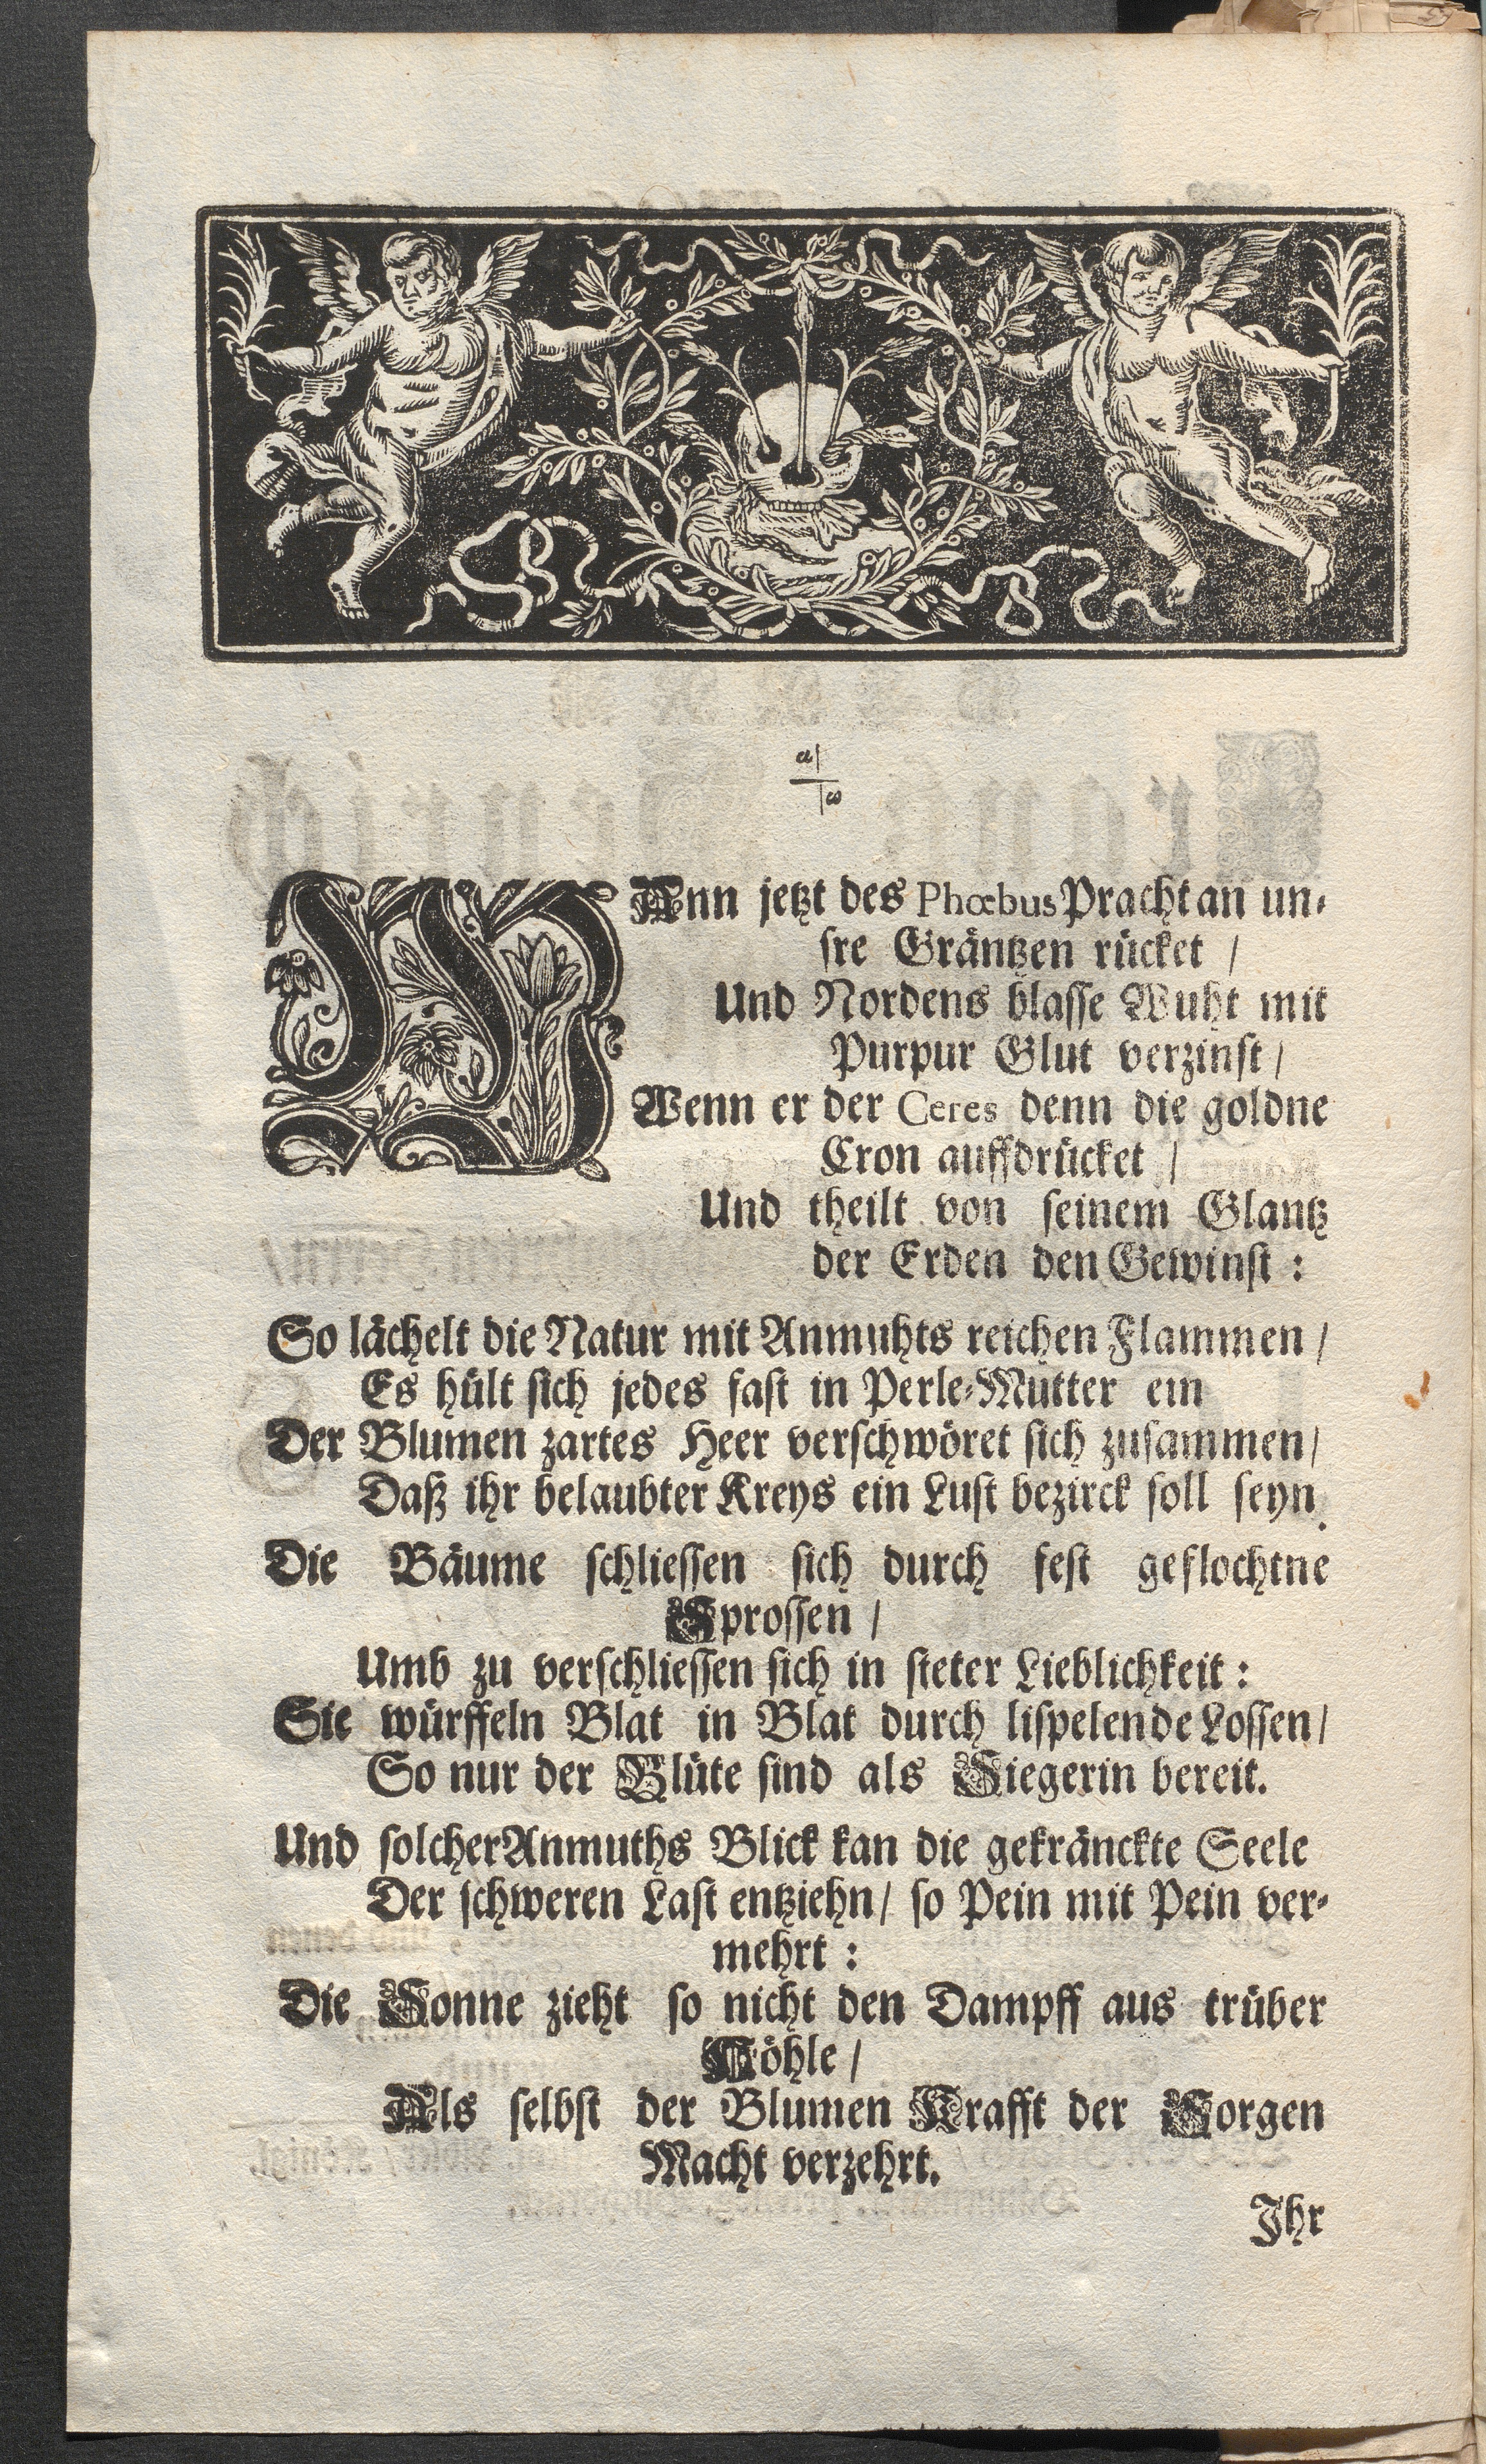 a|
|ω
WAnn jetzt des Phœbus Pracht an un-
sre Gräntzen rücket /
Und Nordens blasse Wuht mit
Purpur Glut verzinst /
Wenn er der Ceres denn die goldne
Cron auffdrücket /
Und theilt von seinem Glantz
der Erden den Gewinst :
So lächelt die Natur mit Anmuhts reichen Flammen /
Es hült sich jedes fast in Perle-Mutter ein
Der Blumen zartes Heer verschwöret sich zusammen /
Daß ihr belaubter Kreys ein Lust bezirck soll seyn.
Die Bäume schliessen sich durch fest geflochtne
Sprossen /
Umb zu verschliessen sich in steter Lieblichkeit :
Sie würffeln Blat in Blat durch lispelende Lossen /
So nur der Blüte sind als Siegerin bereit.
Und solcher Anmuths Blick kan die gekränckte Seele
Der schweren Last entziehn / so Pein mit Pein ver-
mehrt :
Die Sonne zieht so nicht den Dampff aus trüber
Höhle /
Als selbst der Blumen Krafft der Sorgen
Macht verzehrt.
Ihr